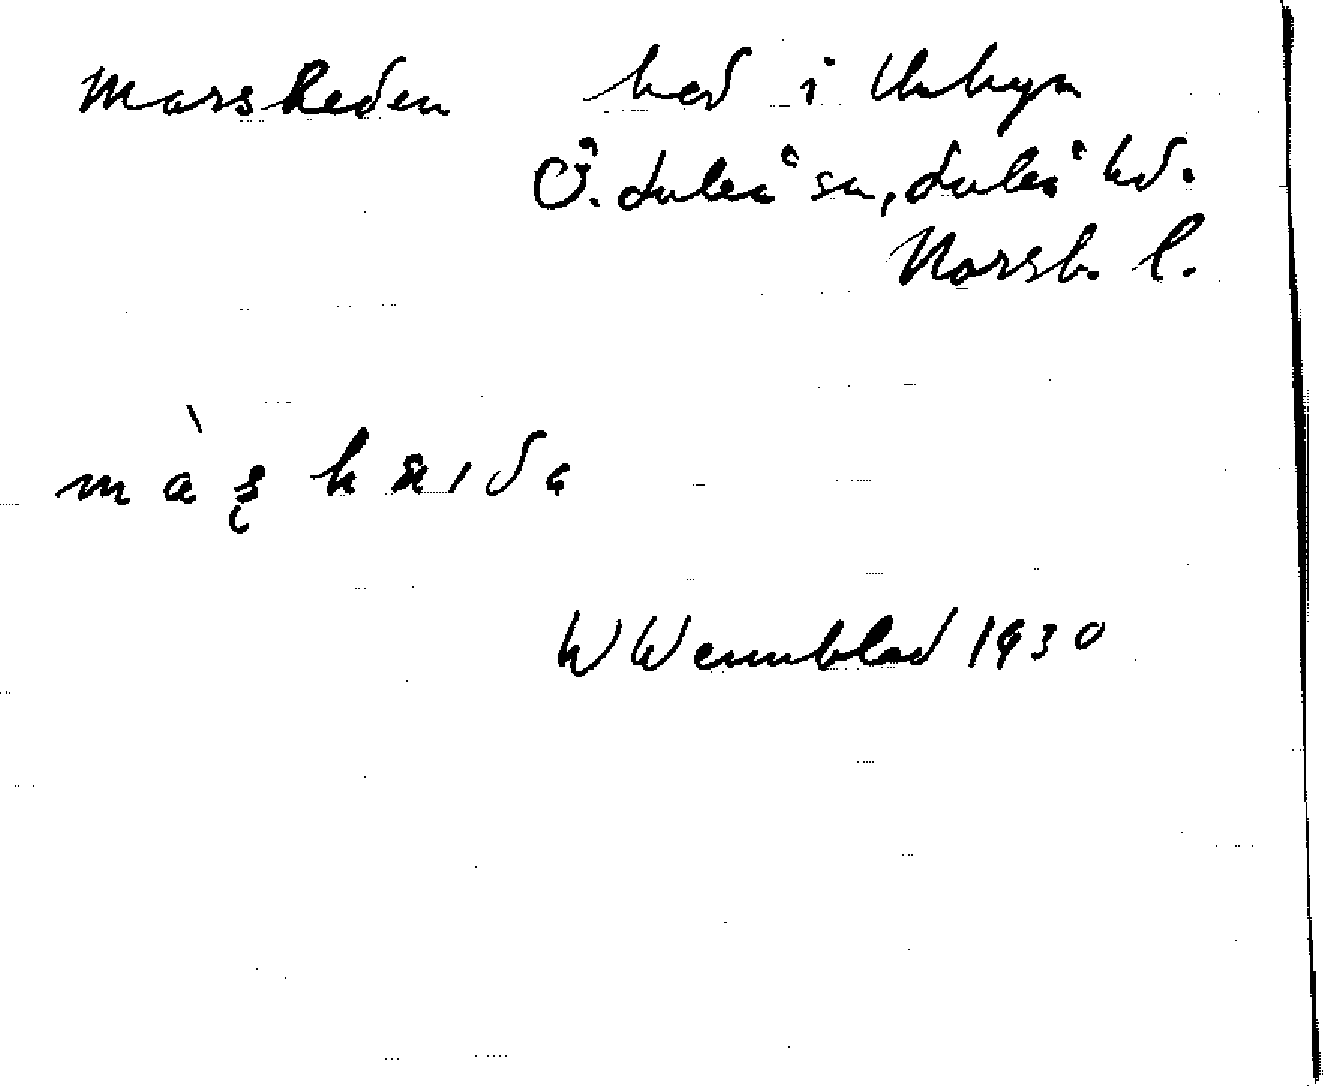 Marsheden hed i Unbyn
Ö. Luleå sn, Luleå hd.
Norrb. l.
W Wennblad 1930